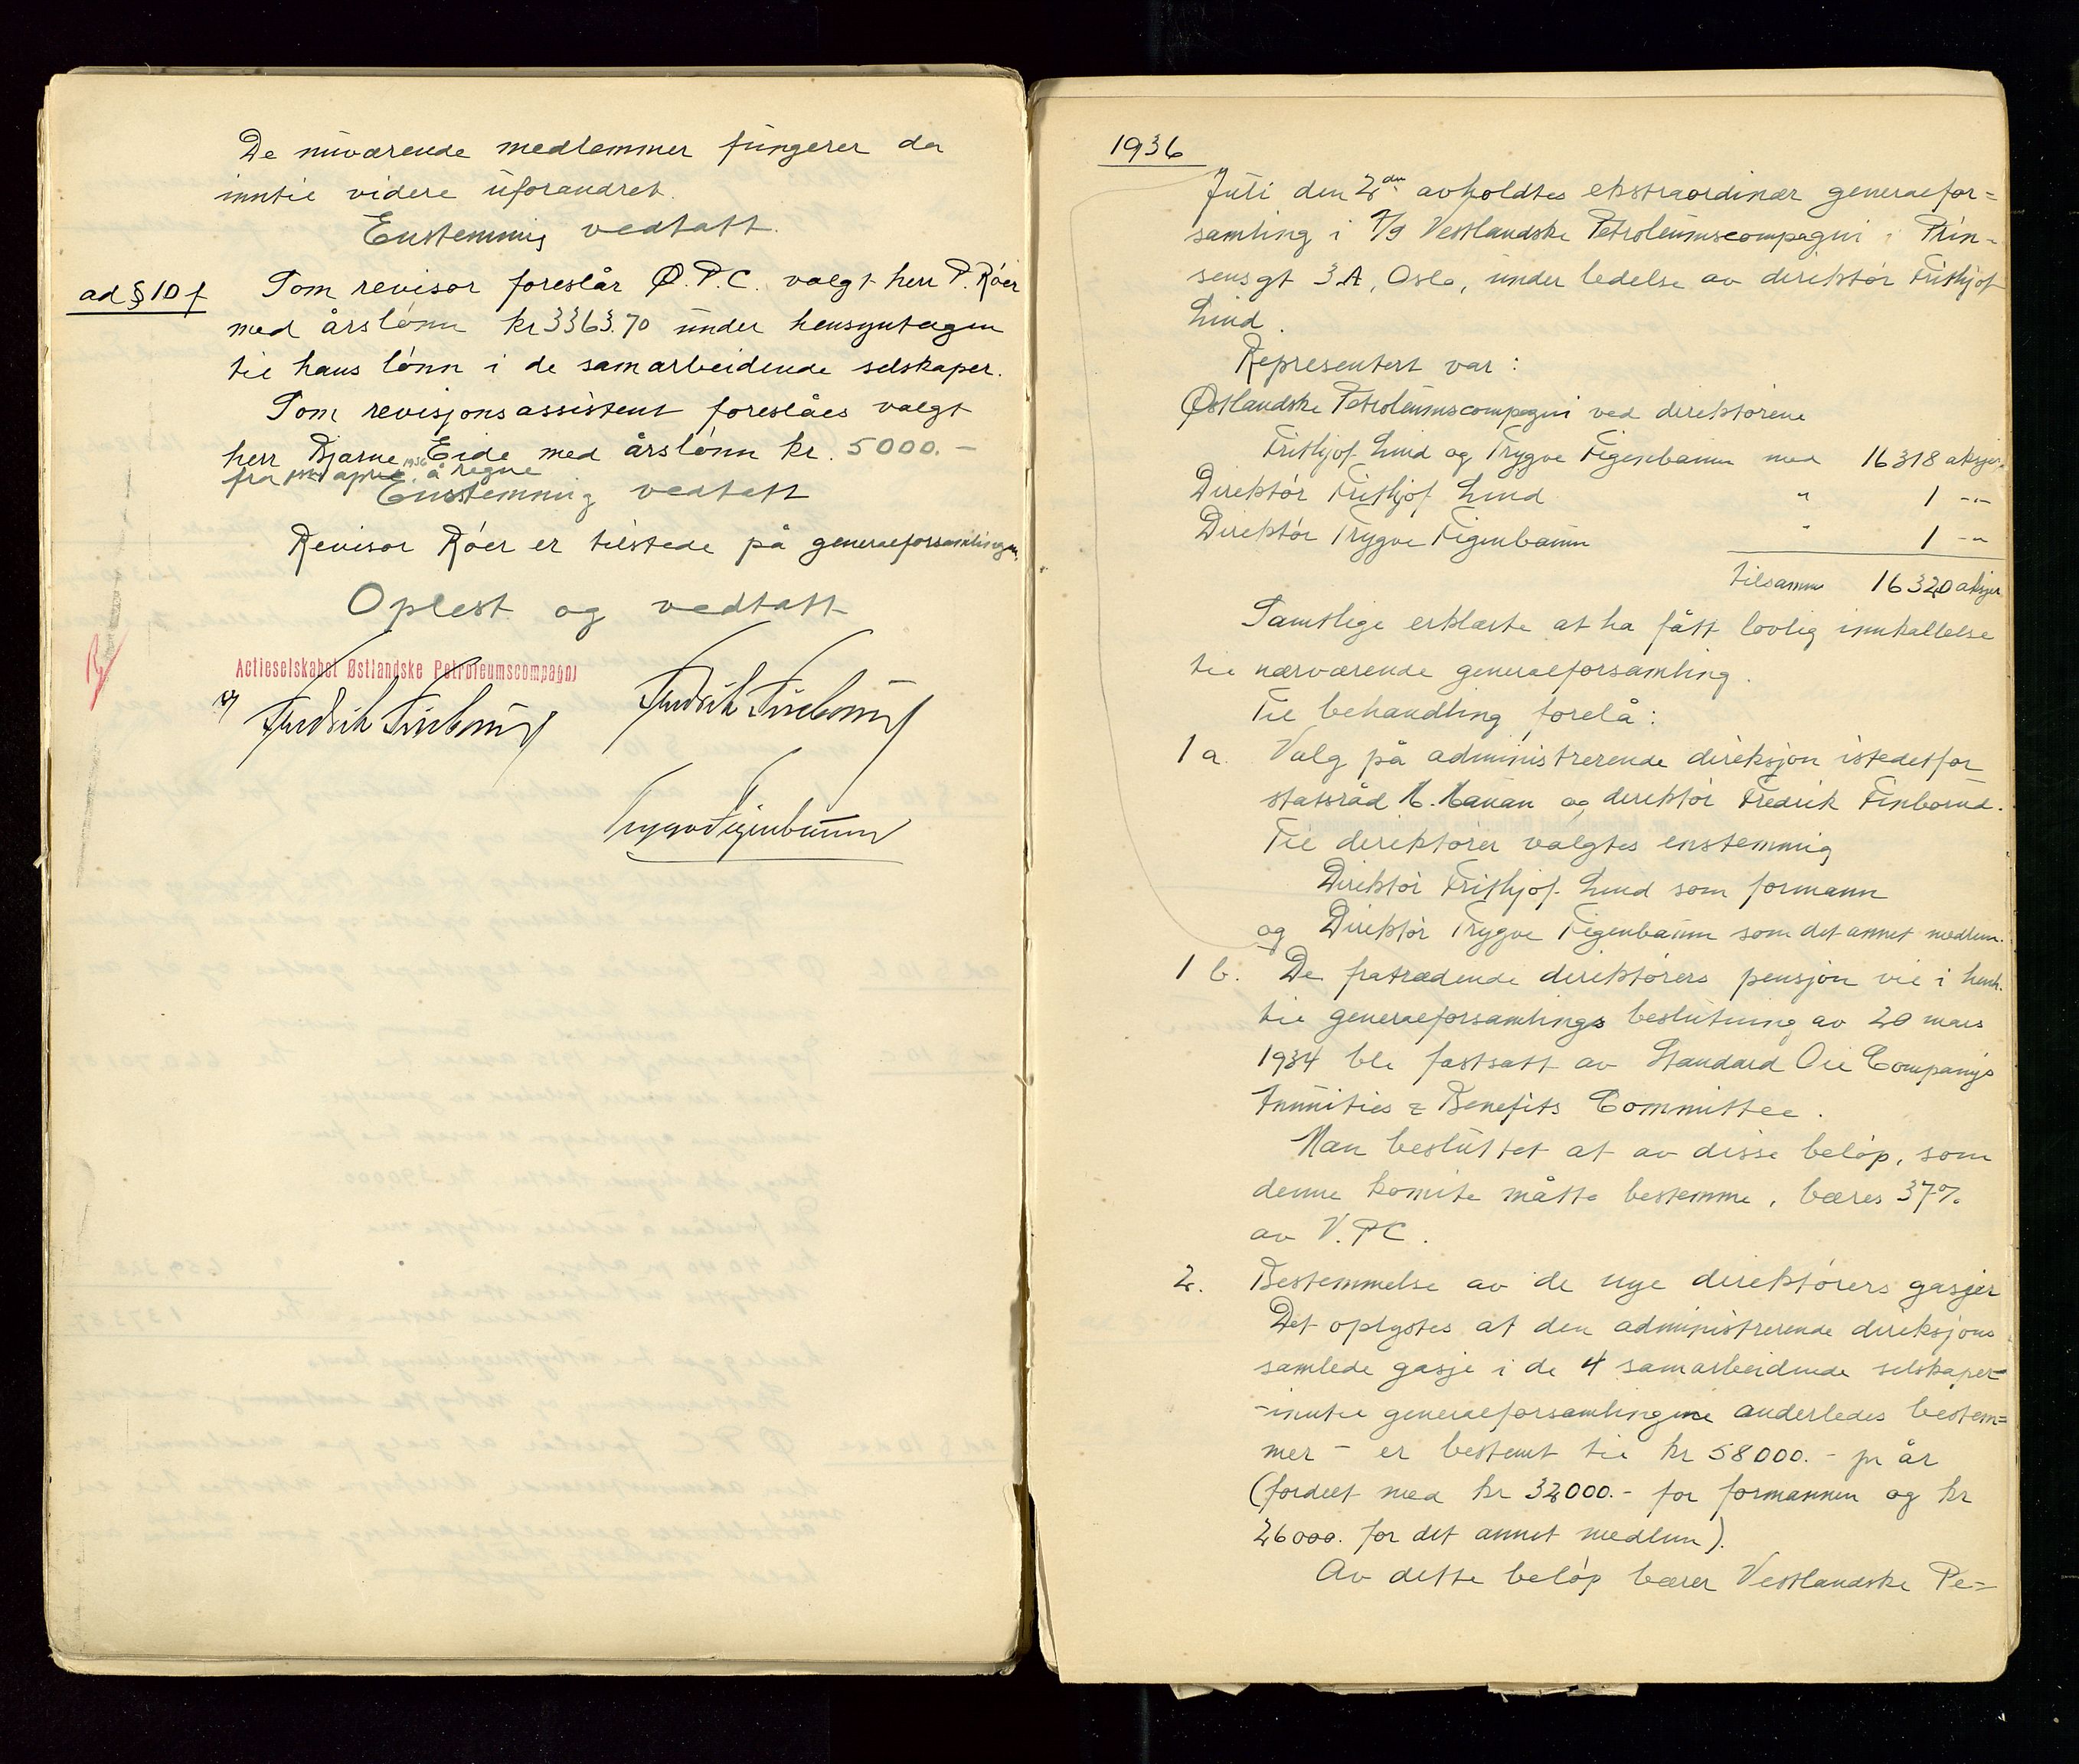 De nuværende medlemmer fungerer da
inntil videre uforandret.
Enstemmig vedtatt.
ad § 10 f Som revisor foreslår Ø.P.C. valgt herr P. Röer
med årslønn kr 3363.70 under hensyntagen
til hans lønn i de samarbeidende selskaper.
Som revisjonsassistent foreslåes valgt
herr Bjarne Eide med årslønn kr. 5000.-
fra april 1936 å regne
Enstemmig vedtatt
Revisor Röer er tilstede på generalforsamlingen.
Oplest og vedtatt
Actieselskabet Østlandske Petroleumscompagni
Fredrik Finborud Fredrik Finborud
Trygve Figenbaum
1936
Juli den 2den avholdtes ekstraordinær generalfor=
samling i A/S Vestlandske Petroleumscompagni i Prin-
sensgt 3A, Oslo, under ledelse av direktør Frithjof
Lind.
Representert var:
Østlandske Petroleumscompagni ved direktørene
Frithjof Lind og Trygve Figenbaum med 16318 aksjer
Direktør Frithjof Lind " 1 -"-
Direktør Trygve Figenbaum " 1 -"
tilsammen 16320 aksjer
Samtlige erklærte at ha fått lovlig innkallelse
til nærværende generalforsamling.
Til behandling forelå:
1 a. Valg på administrerende direksjon istedetfor
statsråd H. Hauan og direktør Fredrik Finborud.
Til direktører valgtes enstemmig
Direktør Frithjof Lind som formann
og Direktør Trygve Figenbaum som det annet medlem.
1 b. De fratrædende direktørers pensjon vil i henh.
til generalforsamlings beslutning av 20 mars
1934 bli fastsatt av Standard Oil Company's
Annuities & Benefits Committee.
Man besluttet at av disse beløp, som
denne komite måtte bestemme, bæres 37%
av V.P.C.
2. Bestemmelse av de nye direktørers gasjer
Det oplystes at den administrerende direksjons
samlede gasje i de 4 samarbeidende selskaper=
-inntil generalforsamlingene anderledes bestem=
mer - er bestemt til kr 58000.- pr år
(fordelt med kr 32000.- for formannen og kr
26000. for det annet medlem).
Av dette beløp bærer Vestlandske Pe=